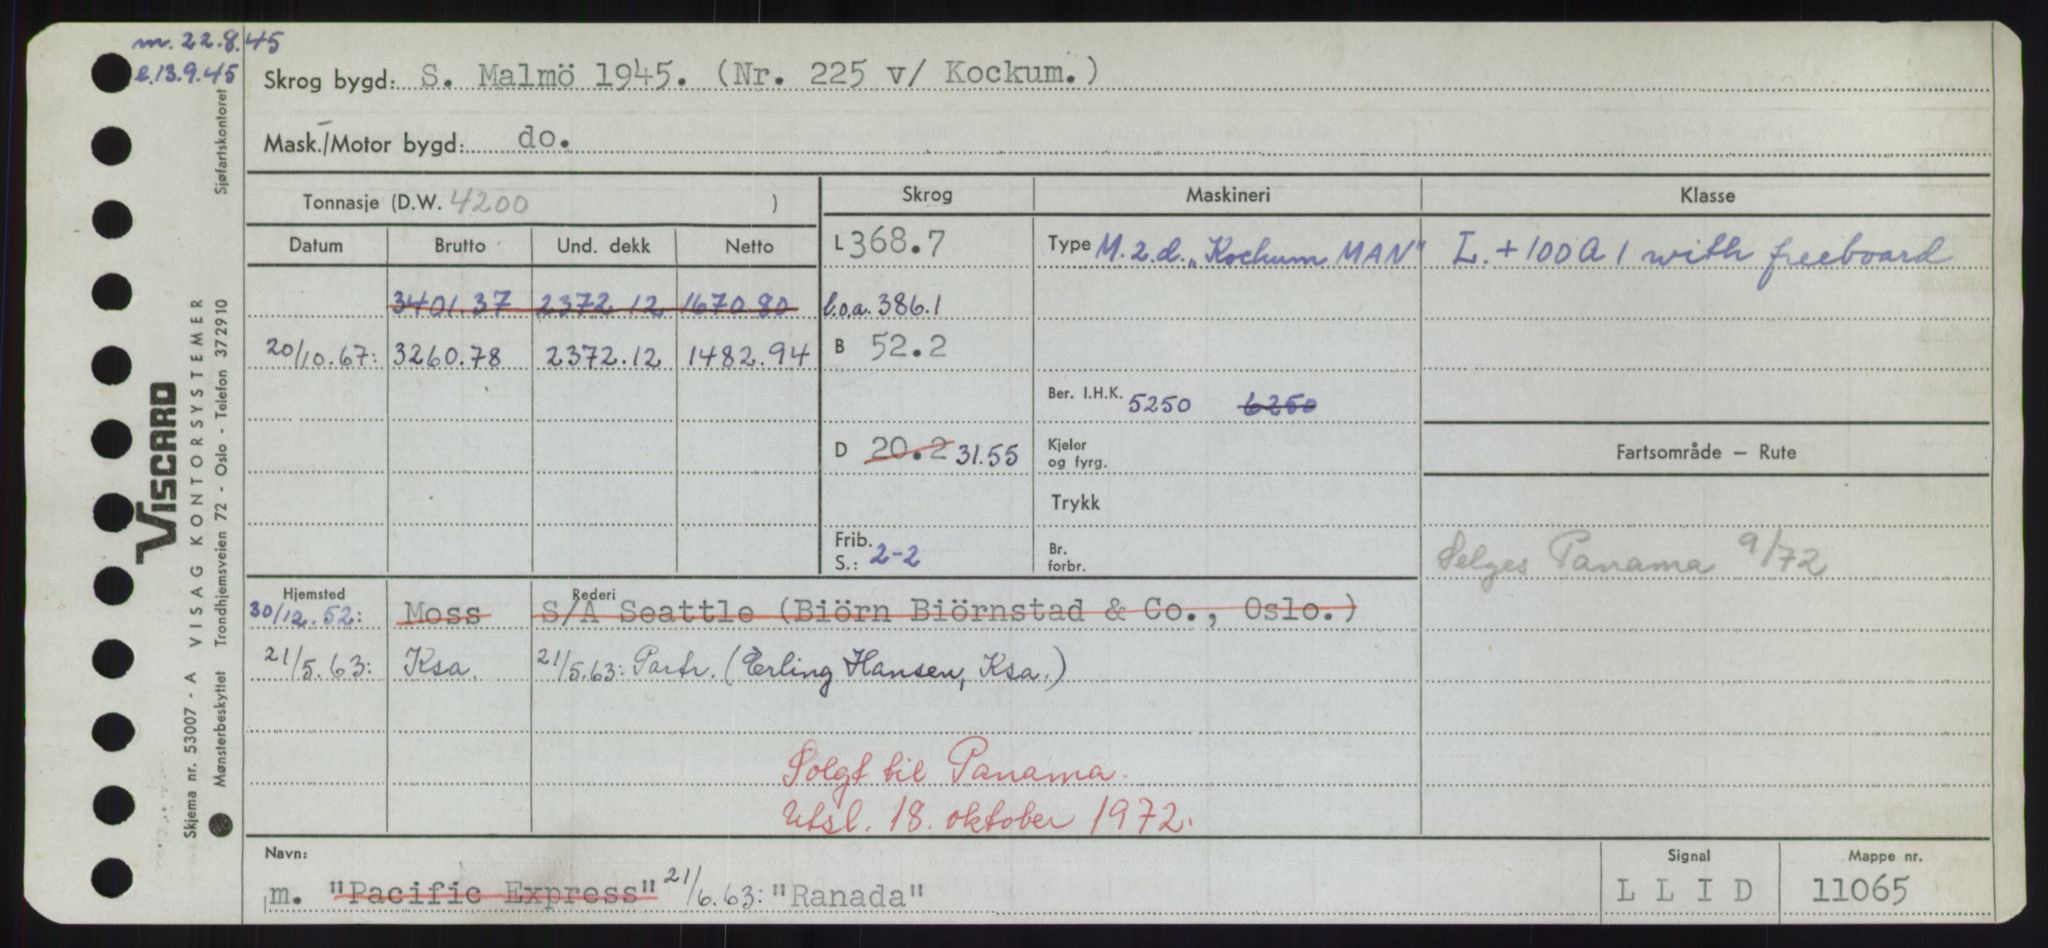 m. 22.8.45
l. 13.9.45
Skrog bygd: S. Malmö 1945. (Nr. 225 v/ Kockum.)
Mask./Motor bygd: do.
Tonnasje (D.W. 4200 )
Skrog
Maskineri
Klasse
Datum Brutto Und. dekk Netto
L 368.7
Type M. 2.d. „Kockum MAN"
L. + 100 A 1 with freeboard
3401.37 2372.12 1670.80
l.o.a. 386.1
20/10.67: 3260.78 2372.12 1482.94
B 52.2
Ber. I.H.K. 5250 6250
D 20.2 31.55
Kjeler
og fyrg.
Fartsområde — Rute
Trykk
Frib.
S.: 2-2
Br.
forbr.
Selges Panama 9/72
Hjemsted
Rederi
30/12.52: Moss S/A Seattle (Biörn Biörnstad & Co., Oslo.)
21/5.63: Ksa. 21/5.63: Partr. (Erling Hansen, Ksa.)
Solgt til Panama.
Utsl. 18. oktober 1972.
Navn:
m. "Pacific Express" 21/6.63: "Ranada"
Signal
L L I D
Mappe nr.
11065
VISCARD
Skjema nr. 53007 - A VISAG KONTORSYSTEMER
Mønsterbeskyttet Trondhjemsveien 72 - Oslo - Telefon 372910 Sjøfartskontoret